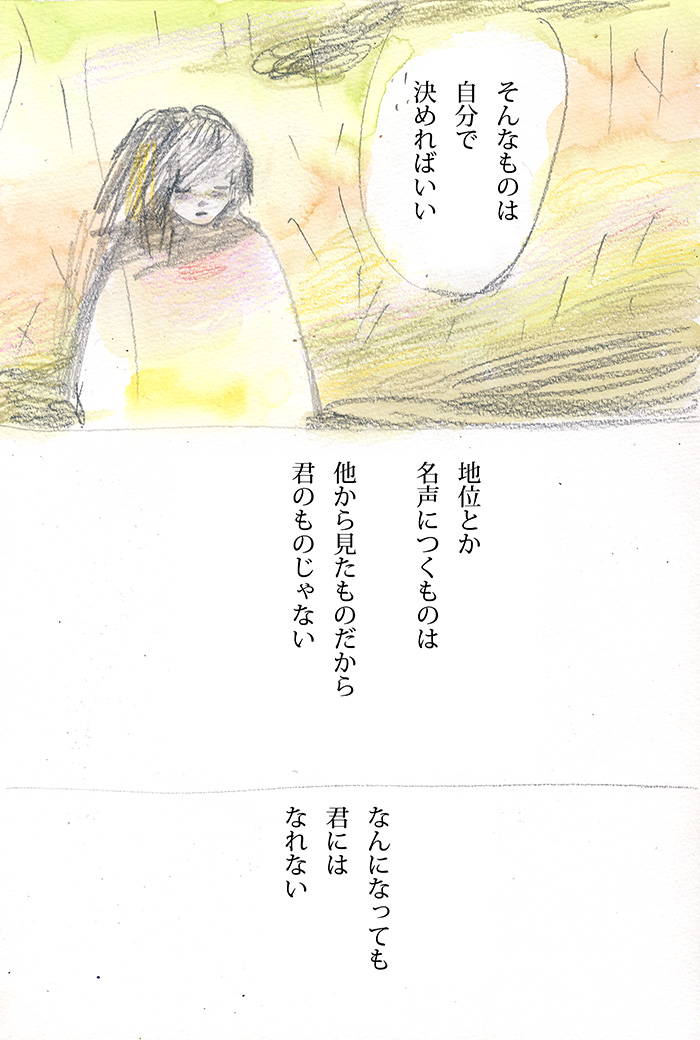 そんなものは
自分で
決めればいい
地位とか
名声につくものは
他から見たものだから
君のものじゃない
なんになっても
君には
なれない